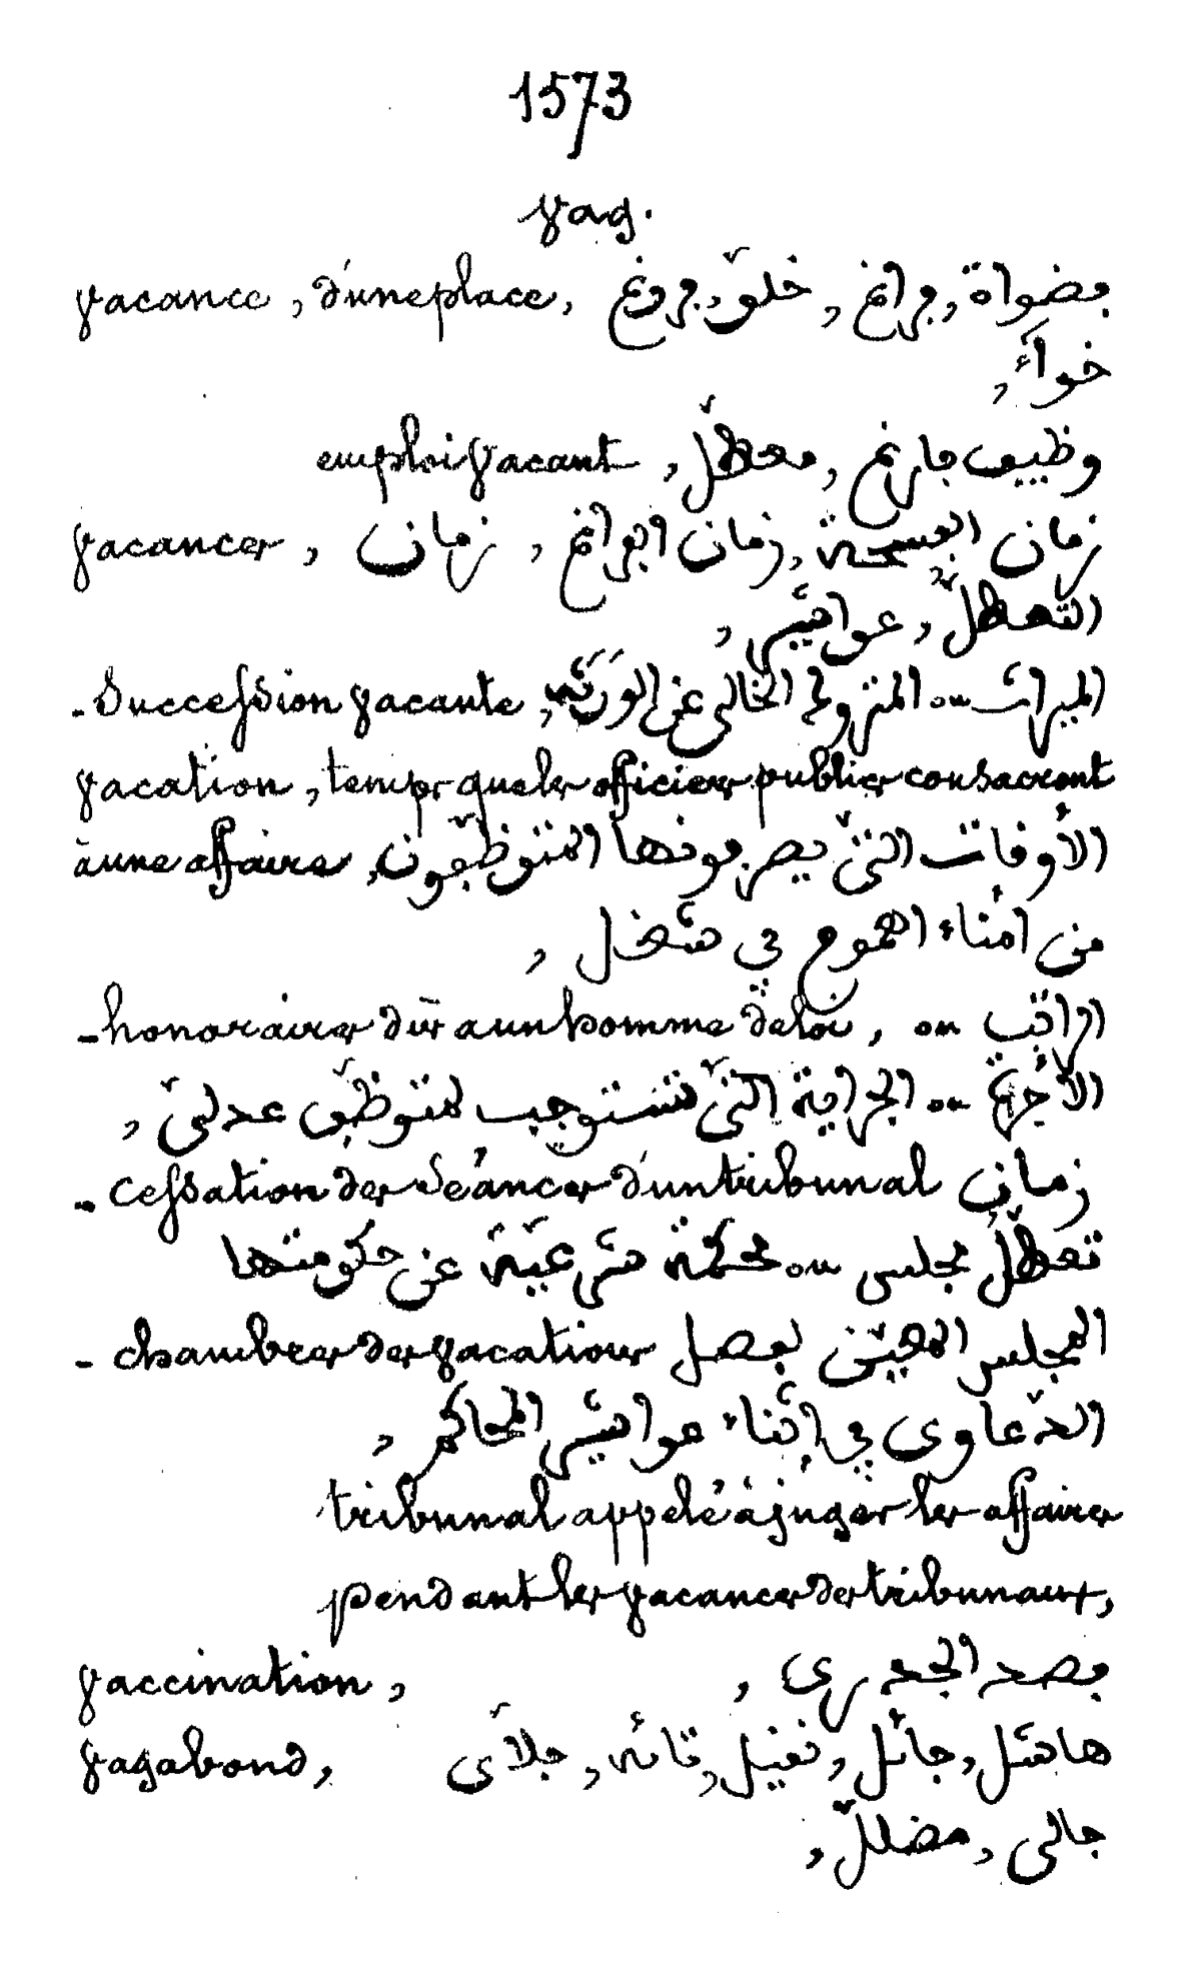 1573
vag.
vacance, d'une place, فضواة, فراغ, خلوّ, فروغ
خواء,
emploi vacant, وظيف فارغ, معطّل,
vacances, زمان الفسحة, زمان الفراغ, زمان
التعطّل, عواشير,
- Succession vacante, الميراث ou المتروك الخالي عن الورثة,
vacation, temps que les officiers publics consacrent
à une affaire, الأوقات التيّ يصرفونها المتوظّفون
من أمناء العموم في شغل,
- honoraires dûs a un homme de loi, الراتب ou
الأجرة ou الجراية التيّ تستوجب لمتوظّف عدليّ,
- cessation des séances d'un tribunal زمان
تعطّل مجلس ou محكمة شرعيّة عن حكومتها
- chambres des vacations المجلس المعيّن لفصل
الدّعاوى في أثناء عواشير المحاكم,
tribunal appelé à juger les affaires
pendant les vacances des tribunaux,
vaccination, فصد الجدري,
vagabond, هاشل, جائل, تائه, جلاّى
جالى, مضلل,